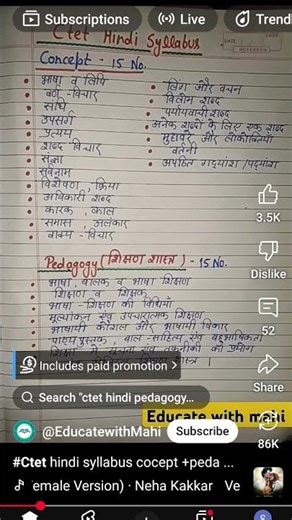 Subscriptions
Live
Trendi
Ctet Hindi Syllabus
Concept - 15 No.
भाषा व लिपि
वर्ण - विचार
संधि
उपसर्ग
प्रत्यय
शब्द विचार
संज्ञा
सर्वनाम
विशेषण, क्रिया
अविकारी शब्द
कारक, काल
समास, अलंकार
वाक्य - विचार
लिंग और वचन
विलोम शब्द
पर्यायवाची शब्द
अनेक शब्दों के लिए एक शब्द
मुहावरे और लोकोक्तियाँ
वर्तनी
अपठित गद्यांश/पद्यांश
Pedagogy (शिक्षण शास्त्र) - 15 No.
भाषा, बालक व भाषा शिक्षण
शिक्षण व शिक्षक
भाषा - शिक्षण की विधियाँ
मूल्यांकन एवं उपचारात्मक शिक्षण
भाषायी कौशल और भाषायी विकार
पाठ्यपुस्तक, बाल-साहित्य एवं बहुभाषिकता
शिक्षा में सूचना एवं तकनीकी का प्रयोग
3.5K
Dislike
52
Share
86K
Includes paid promotion >
Search "ctet hindi pedagogy...
Educate with mahi
@EducatewithMahi
Subscribe
#Ctet hindi syllabus cocept +peda ...
Female Version) · Neha Kakkar Ve
S